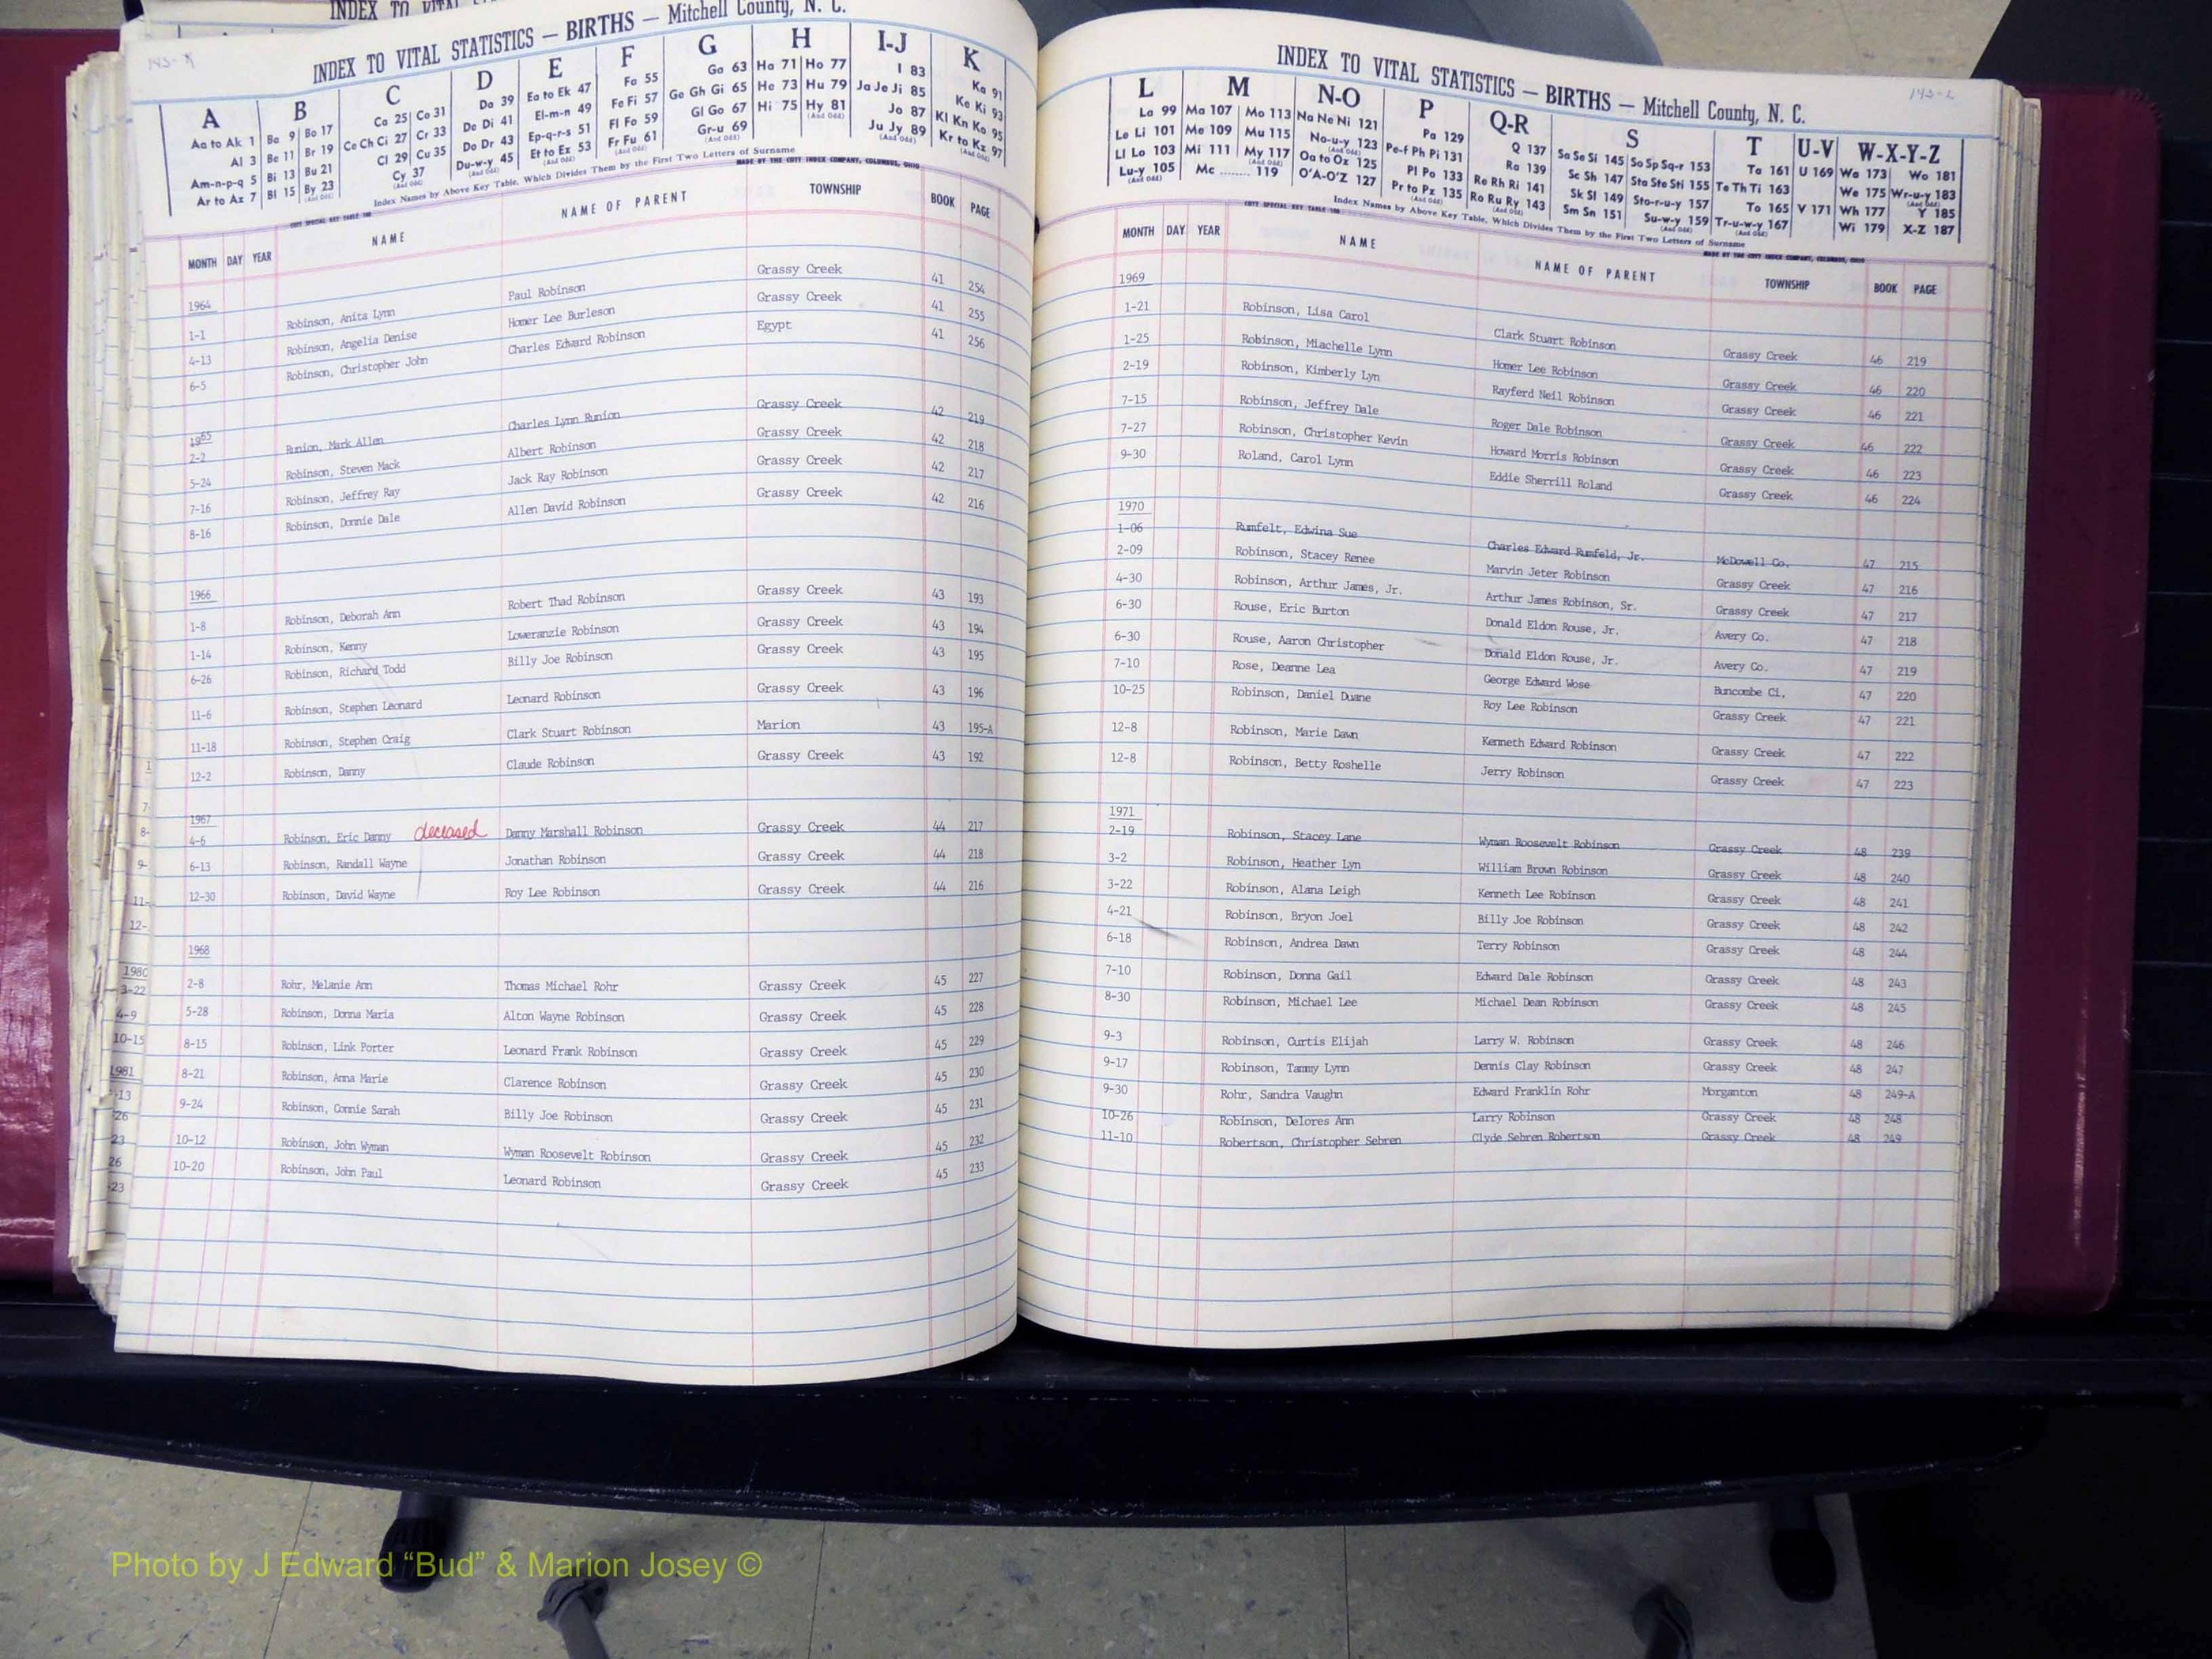 INDEX TO VITAL
143-K
INDEX TO VITAL STATISTICS — BIRTHS — Mitchell County, N. C.
A B C D E F G H I-J K
Aa to Ak 1 Ba 9 Bo 17 Ca 25 Co 31 Da 39 Ea to Ek 47 Fa 55 Ga 63 Ha 71 Ho 77 I 83 Ka 91
Al 3 Be 11 Br 19 Ce Ch Ci 27 Cr 33 De Di 41 El-m-n 49 Fe Fi 57 Ge Gh Gi 65 He 73 Hu 79 Ja Je Ji 85 Ke Ki 93
Am-n-p-q 5 Bi 13 Bu 21 Cl 29 Cu 35 Do Dr 43 Ep-q-r-s 51 Fl Fo 59 Gl Go 67 Hi 75 Hy 81 Jo 87 Kl Kn Ko 95
Ar to Az 7 Bl 15 By 23 Cy 37 Du-w-y 45 Et to Ez 53 Fr Fu 61 Gr-u 69 Ju Jy 89 Kr to Kz 97
Index Names by Above Key Table, Which Divides Them by the First Two Letters of Surname
MADE BY THE COTT INDEX COMPANY, COLUMBUS, OHIO
MONTH DAY YEAR NAME NAME OF PARENT TOWNSHIP BOOK PAGE
1964
1-1 Robinson, Anita Lynn Paul Robinson Grassy Creek 41 254
4-13 Robinson, Angelia Denise Homer Lee Burleson Grassy Creek 41 255
6-5 Robinson, Christopher John Charles Edward Robinson Egypt 41 256
1965
2-2 Runion, Mark Allen Charles Lynn Runion Grassy Creek 42 219
5-24 Robinson, Steven Mack Albert Robinson Grassy Creek 42 218
7-16 Robinson, Jeffrey Ray Jack Ray Robinson Grassy Creek 42 217
8-16 Robinson, Donnie Dale Allen David Robinson Grassy Creek 42 216
1966
1-8 Robinson, Deborah Ann Robert Thad Robinson Grassy Creek 43 193
1-14 Robinson, Kenny Loweranzie Robinson Grassy Creek 43 194
6-26 Robinson, Richard Todd Billy Joe Robinson Grassy Creek 43 195
11-6 Robinson, Stephen Leonard Leonard Robinson Grassy Creek 43 196
11-18 Robinson, Stephen Craig Clark Stuart Robinson Marion 43 195-A
12-2 Robinson, Danny Claude Robinson Grassy Creek 43 192
1967
4-6 Robinson, Eric Danny deceased Danny Marshall Robinson Grassy Creek 44 217
6-13 Robinson, Randall Wayne Jonathan Robinson Grassy Creek 44 218
12-30 Robinson, David Wayne Roy Lee Robinson Grassy Creek 44 216
1968
2-8 Rohr, Melanie Ann Thomas Michael Rohr Grassy Creek 45 227
5-28 Robinson, Donna Maria Alton Wayne Robinson Grassy Creek 45 228
8-15 Robinson, Link Porter Leonard Frank Robinson Grassy Creek 45 229
8-21 Robinson, Anna Marie Clarence Robinson Grassy Creek 45 230
9-24 Robinson, Connie Sarah Billy Joe Robinson Grassy Creek 45 231
10-12 Robinson, John Wyman Wyman Roosevelt Robinson Grassy Creek 45 232
10-20 Robinson, John Paul Leonard Robinson Grassy Creek 45 233
1
7-
8-
9-
11-
12-
1980
3-22
4-9
10-15
1981
-13
26
23
26
23
143-L
INDEX TO VITAL STATISTICS — BIRTHS — Mitchell County, N. C.
L M N-O P Q-R S T U-V W-X-Y-Z
La 99 Ma 107 Mo 113 Na Ne Ni 121 Pa 129 Q 137 Sa Se Si 145 So Sp Sq-r 153 Ta 161 U 169 Wa 173 Wo 181
Le Li 101 Me 109 Mu 115 No-u-y 123 Pe-f Ph Pi 131 Ra 139 Sc Sh 147 Sta Ste Sti 155 Te Th Ti 163 We 175 Wr-u-y 183
Ll Lo 103 Mi 111 My 117 Oa to Oz 125 Pl Po 133 Re Rh Ri 141 Sk Sl 149 Sto-r-u-y 157 To 165 V 171 Wh 177 Y 185
Lu-y 105 Mc ........ 119 O'A-O'Z 127 Pr to Pz 135 Ro Ru Ry 143 Sm Sn 151 Su-w-y 159 Tr-u-w-y 167 Wi 179 X-Z 187
Index Names by Above Key Table, Which Divides Them by the First Two Letters of Surname
MADE BY THE COTT INDEX COMPANY, COLUMBUS, OHIO
MONTH DAY YEAR NAME NAME OF PARENT TOWNSHIP BOOK PAGE
1969
1-21 Robinson, Lisa Carol Clark Stuart Robinson Grassy Creek 46 219
1-25 Robinson, Miachelle Lynn Homer Lee Robinson Grassy Creek 46 220
2-19 Robinson, Kimberly Lyn Rayferd Neil Robinson Grassy Creek 46 221
7-15 Robinson, Jeffrey Dale Roger Dale Robinson Grassy Creek 46 222
7-27 Robinson, Christopher Kevin Howard Morris Robinson Grassy Creek 46 223
9-30 Roland, Carol Lynn Eddie Sherrill Roland Grassy Creek 46 224
1970
1-06 Rumfelt, Edwina Sue Charles Edward Rumfeld, Jr. McDowell Co. 47 215
2-09 Robinson, Stacey Renee Marvin Jeter Robinson Grassy Creek 47 216
4-30 Robinson, Arthur James, Jr. Arthur James Robinson, Sr. Grassy Creek 47 217
6-30 Rouse, Eric Burton Donald Eldon Rouse, Jr. Avery Co. 47 218
6-30 Rouse, Aaron Christopher Donald Eldon Rouse, Jr. Avery Co. 47 219
7-10 Rose, Deanne Lea George Edward Wose Buncombe Ci, 47 220
10-25 Robinson, Daniel Duane Roy Lee Robinson Grassy Creek 47 221
12-8 Robinson, Marie Dawn Kenneth Edward Robinson Grassy Creek 47 222
12-8 Robinson, Betty Roshelle Jerry Robinson Grassy Creek 47 223
1971
2-19 Robinson, Stacey Lane Wyman Roosevelt Robinson Grassy Creek 48 239
3-2 Robinson, Heather Lyn William Brown Robinson Grassy Creek 48 240
3-22 Robinson, Alana Leigh Kenneth Lee Robinson Grassy Creek 48 241
4-21 Robinson, Bryon Joel Billy Joe Robinson Grassy Creek 48 242
6-18 Robinson, Andrea Dawn Terry Robinson Grassy Creek 48 244
7-10 Robinson, Donna Gail Edward Dale Robinson Grassy Creek 48 243
8-30 Robinson, Michael Lee Michael Dean Robinson Grassy Creek 48 245
9-3 Robinson, Curtis Elijah Larry W. Robinson Grassy Creek 48 246
9-17 Robinson, Tammy Lynn Dennis Clay Robinson Grassy Creek 48 247
9-30 Rohr, Sandra Vaughn Edward Franklin Rohr Morganton 48 249-A
10-26 Robinson, Delores Ann Larry Robinson Grassy Creek 48 248
11-10 Robertson, Christopher Sebren Clyde Sebren Robertson Grassy Creek 48 249
Photo by J Edward “Bud” & Marion Josey ©